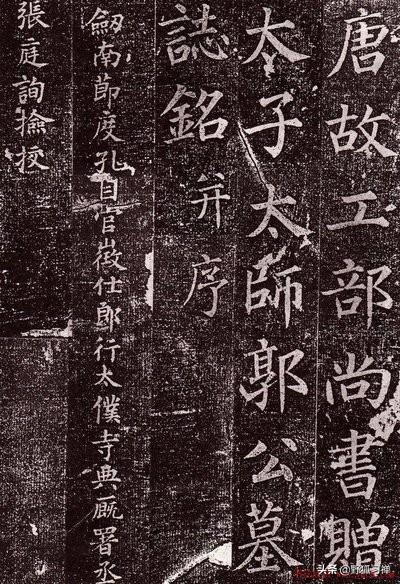 唐故工部尚書贈
太子太師郭公墓
誌銘并序
劒南節度孔目官徵仕郎行太僕寺典廐署丞
張庭詢撿挍
头条@野狐与禅